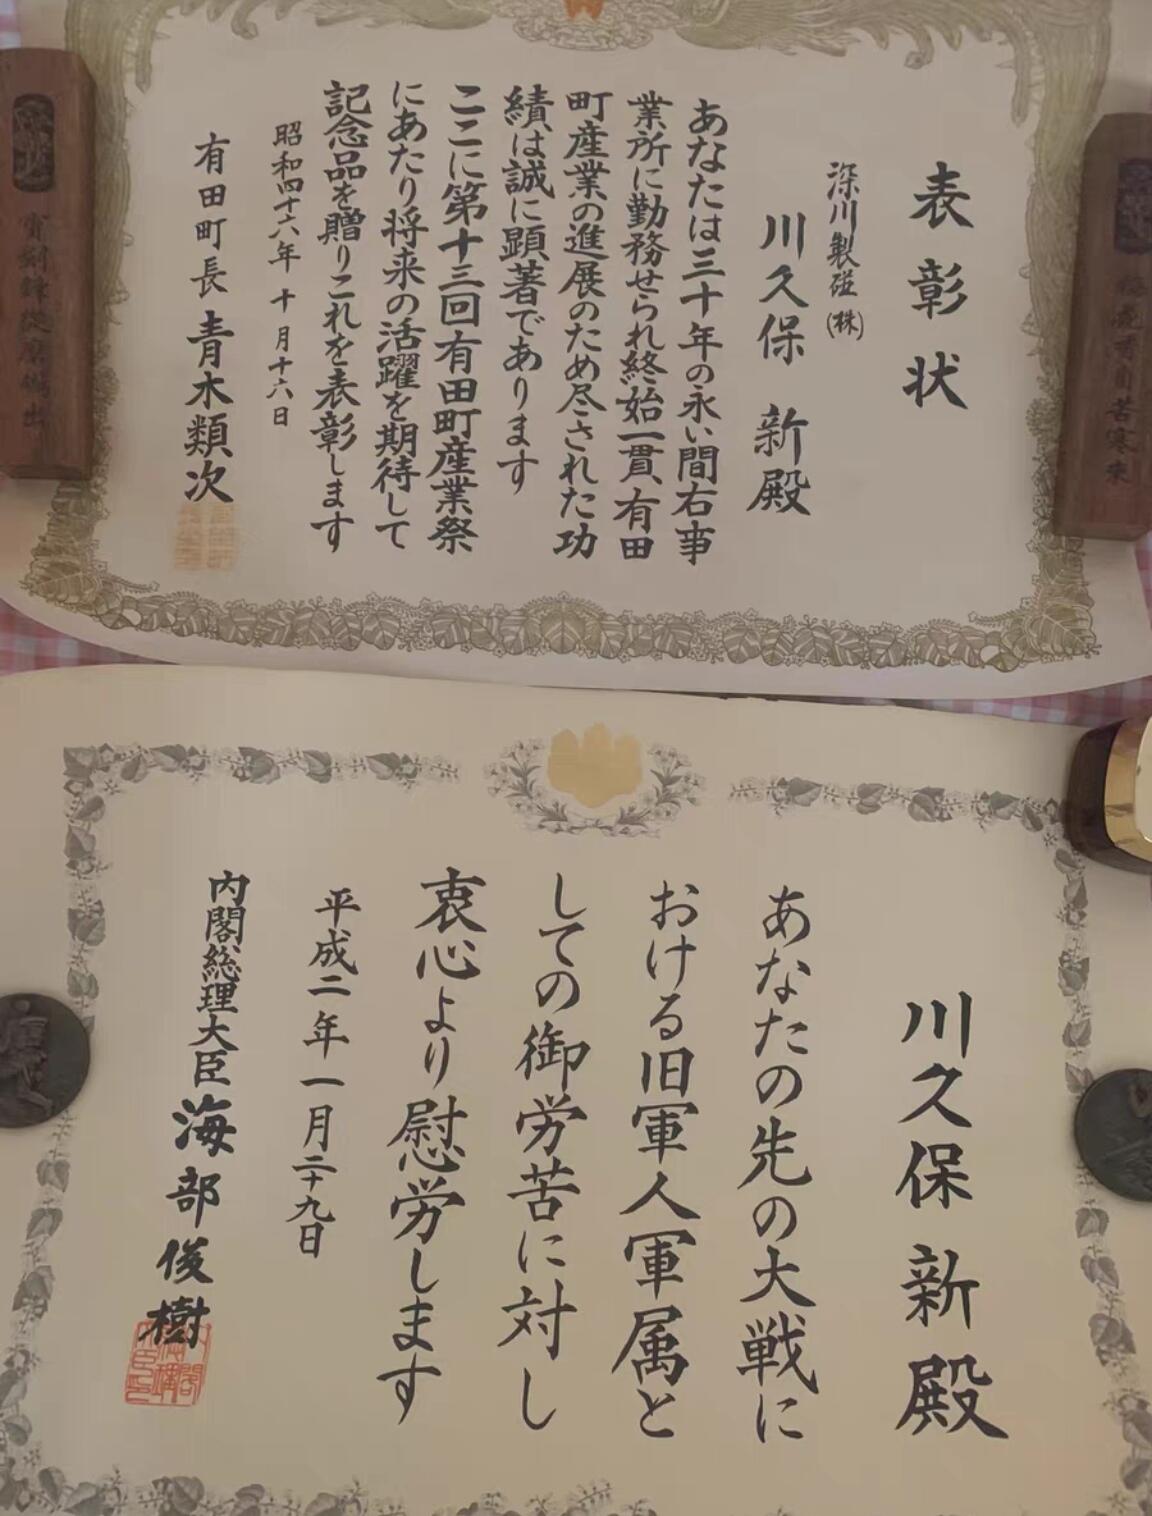 表彰状
深川製磁(株)
川久保 新殿
あなたは三十年の永い間右事
業所に勤務せられ終始一貫、有田
町産業の進展のため尽された功
績は誠に顕著であります
ここに第十三回有田町産業祭
にあたり将来の活躍を期待して
記念品を贈りこれを表彰します
昭和四十六年十月十六日
有田町長 青木類次
川久保 新殿
あなたの先の大戦に
おける旧軍人軍属と
しての御労苦に対し
衷心より慰労します
平成二年一月二十九日
内閣総理大臣 海部俊樹
香自苦寒来
宝剣鋒従磨